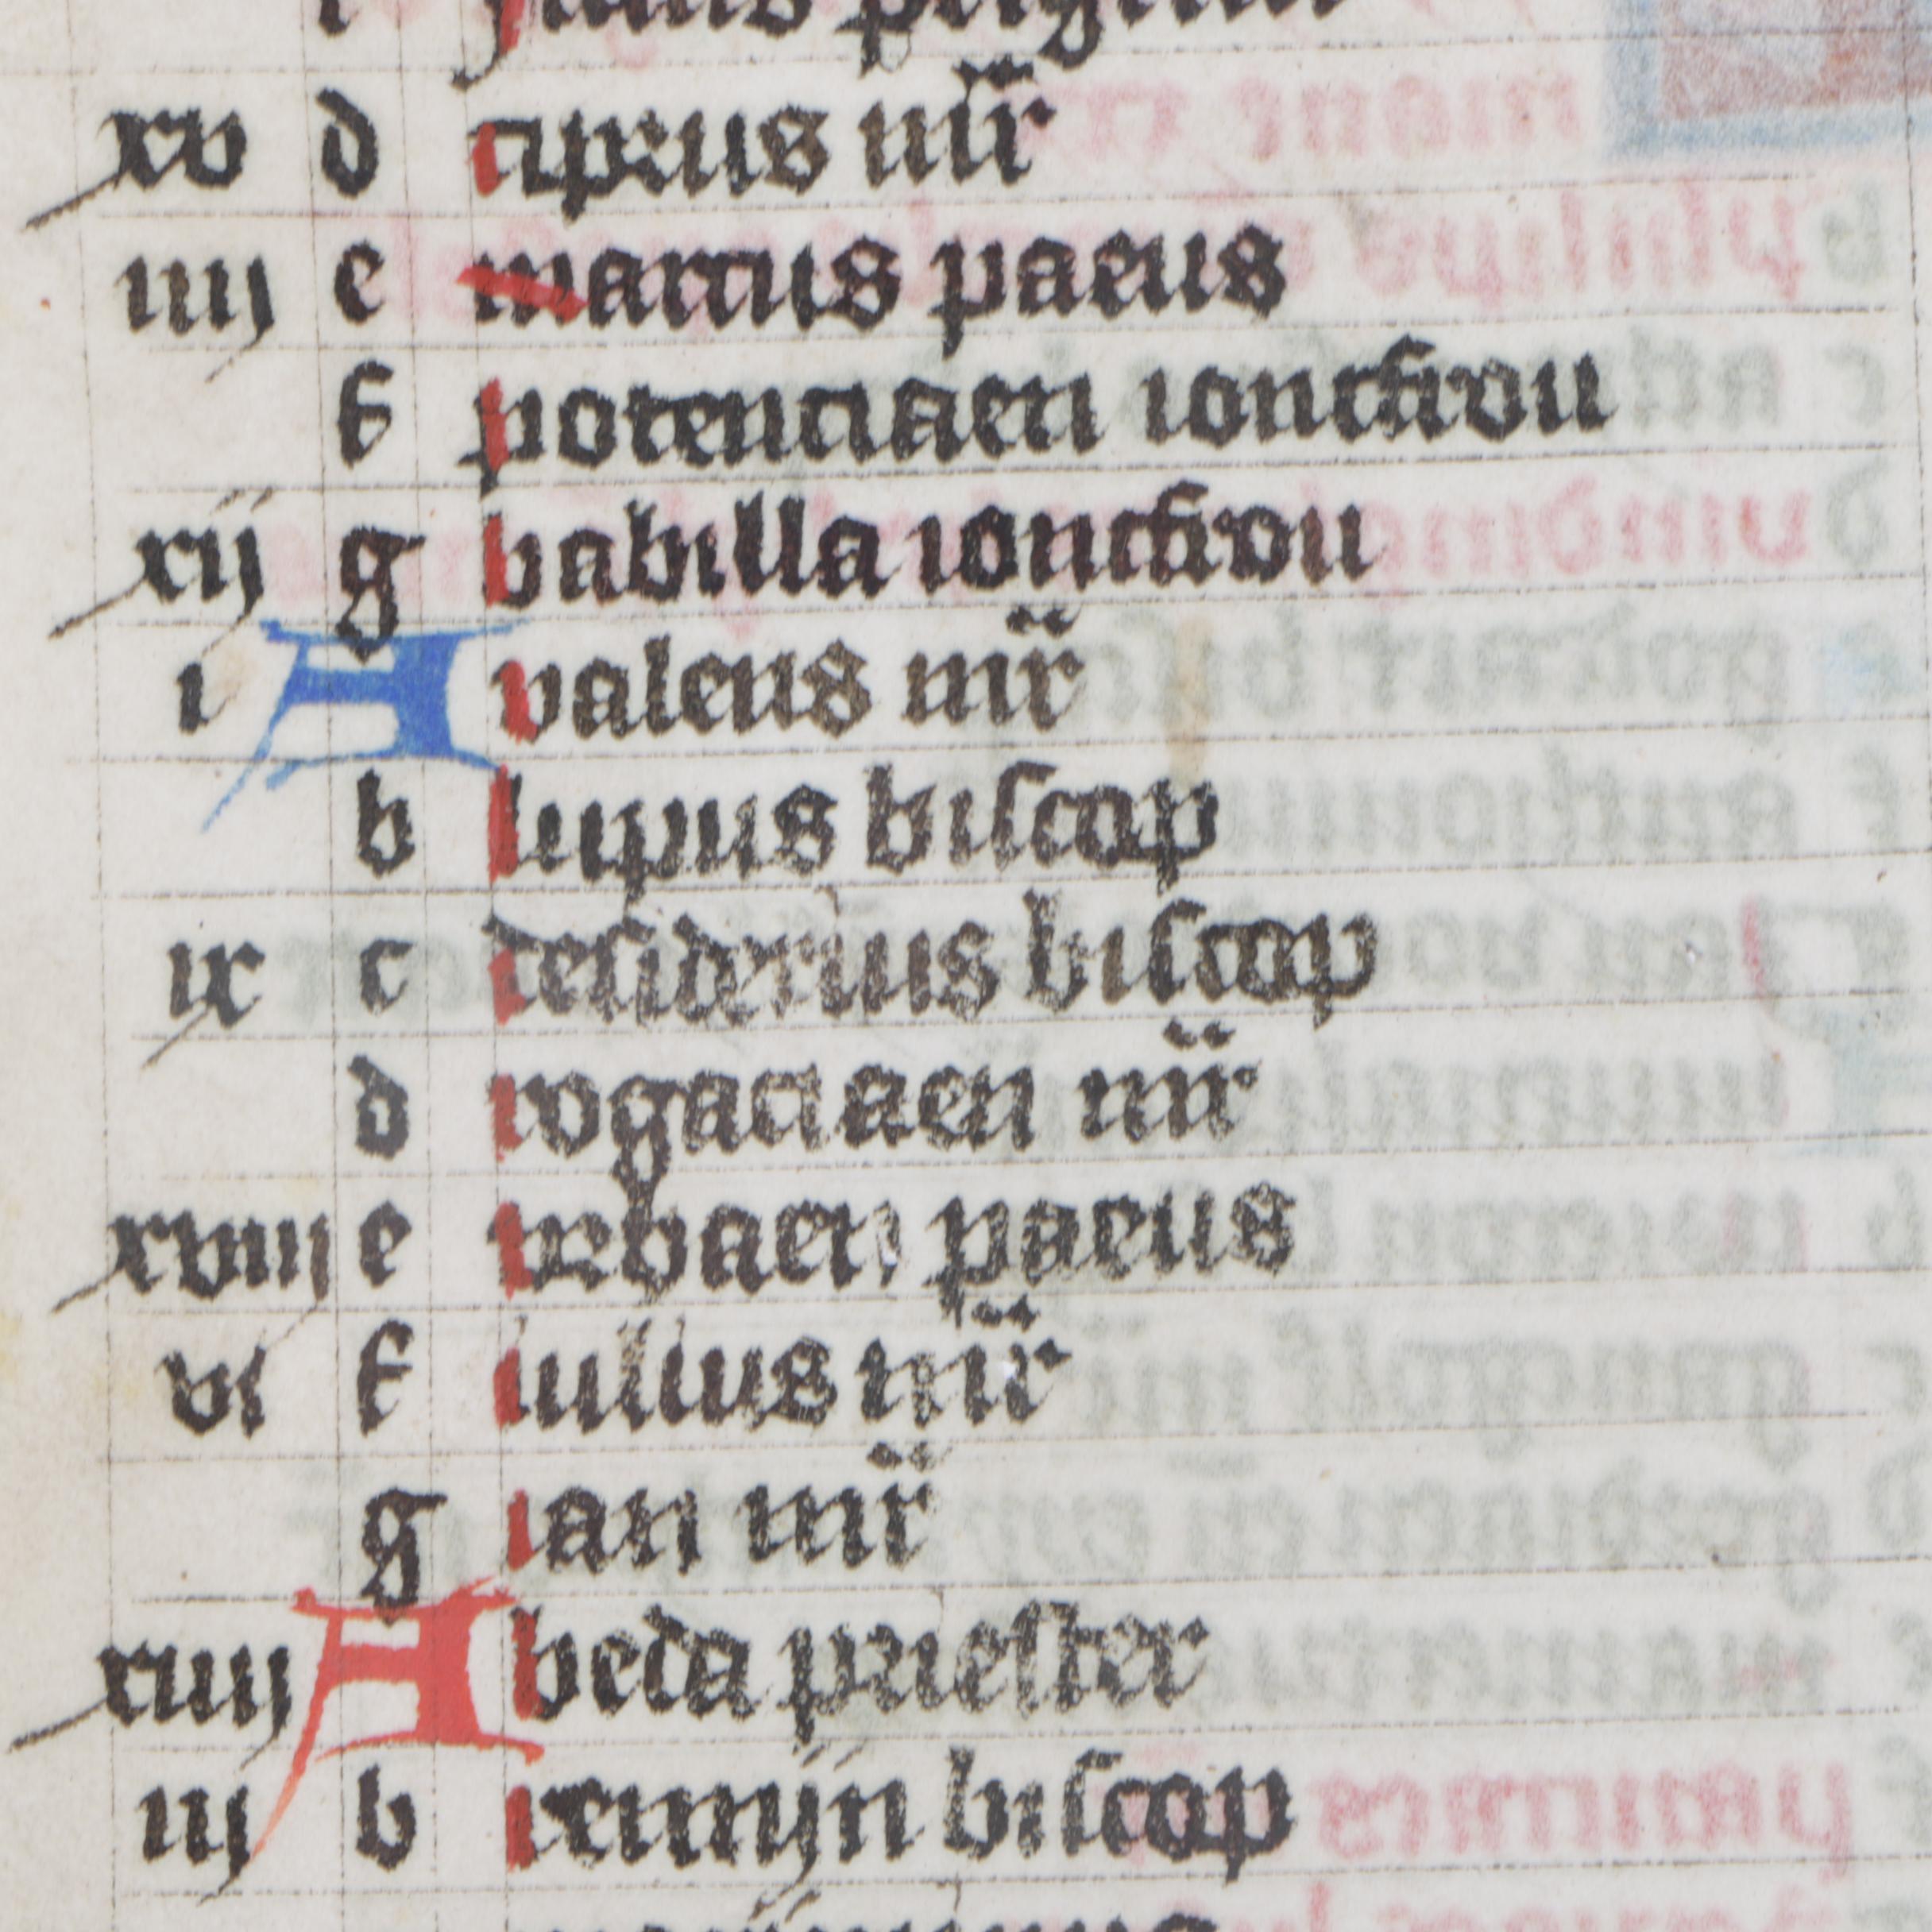 xv d ciprius mr̄
iiij e marcus paeus
f potenciaen ioncfrou
xij g babilla ioncfrou
i A valens mr̄
b lupus biscop
ix c desiderius biscop
d rogaciaen mr̄
xviij e vrbaen paeus
vi f iulius mr̄
g ian mr̄
xiiij A beda priester
iij b remijn biscop